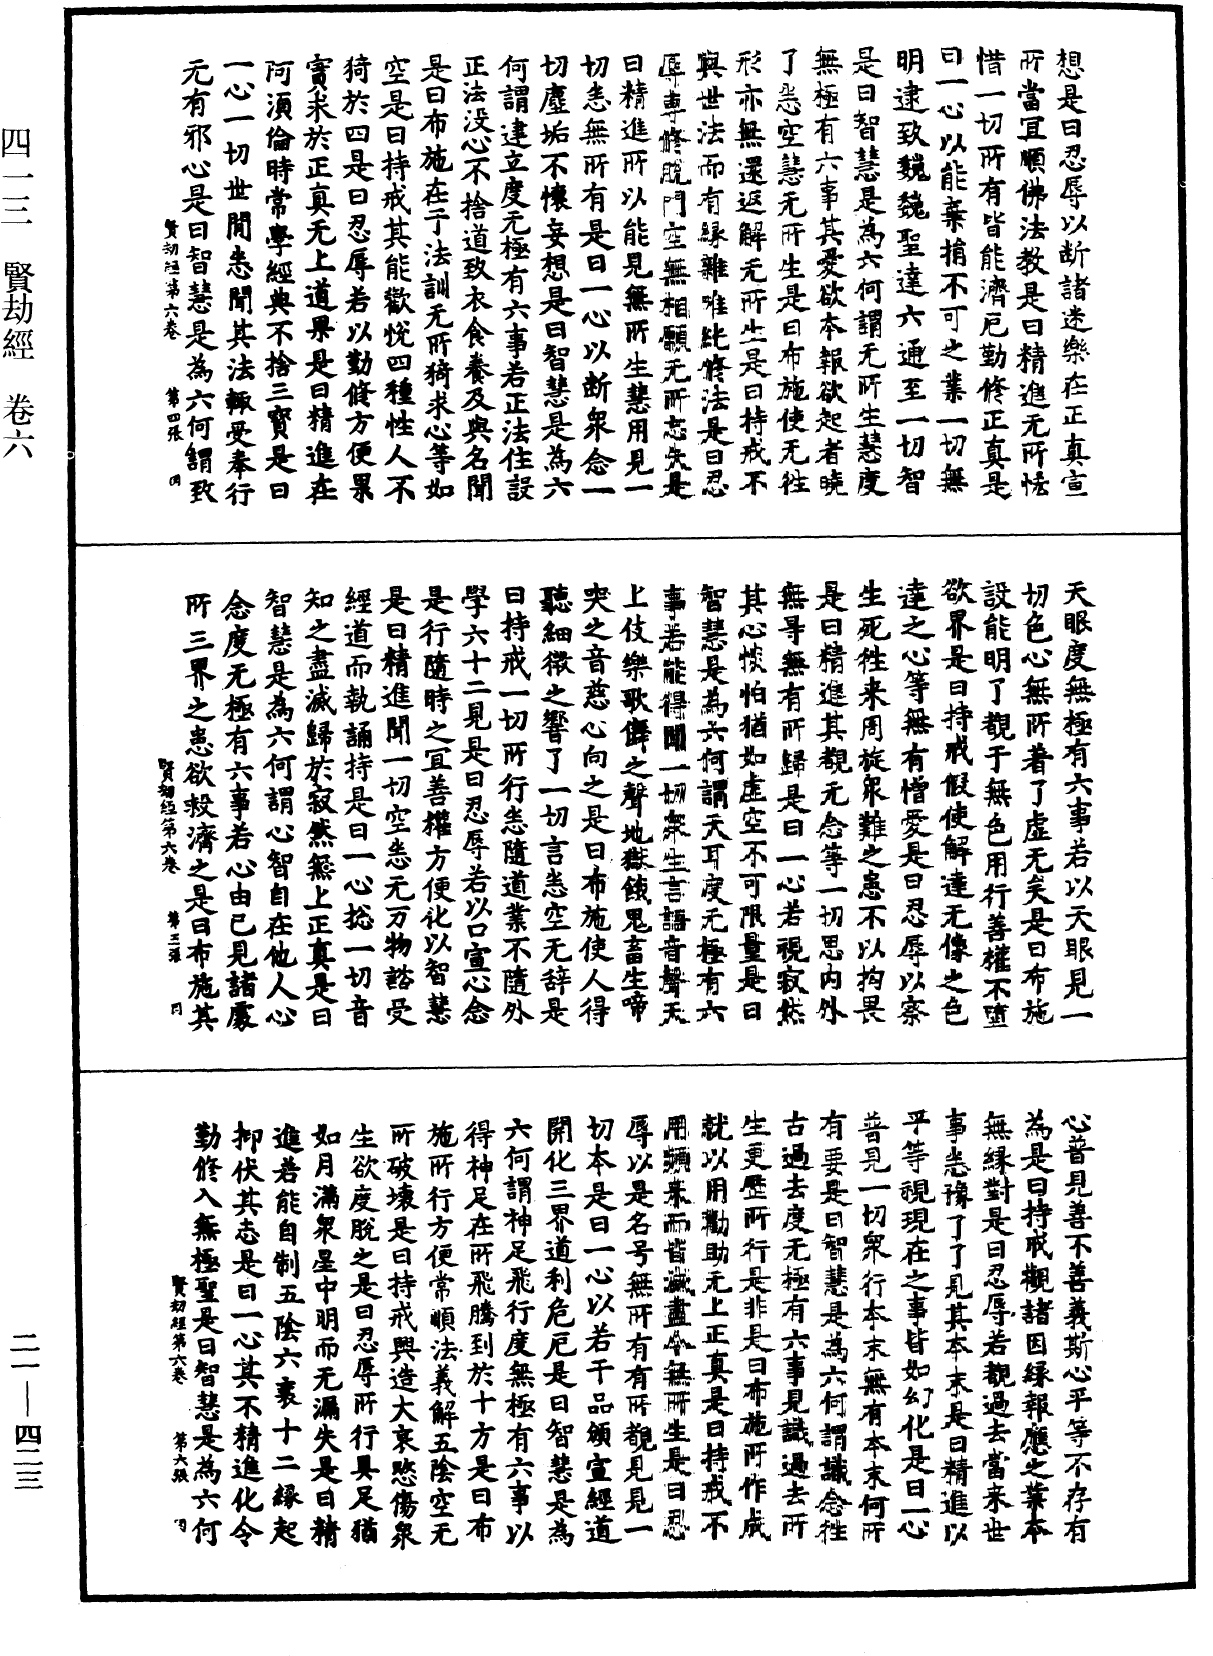 四一三 賢劫經 卷六
想是曰忍辱以断諸迷樂在正真宣
所當宜順佛法教是曰精進无所恡
惜一切所有皆能濟厄勤修正真是
曰一心以能棄捐不可之業一切無
明逮致巍巍聖達六通至一切智
是曰智慧是為六何謂无所生慧度
無極有六事其愛欲本報欲起者曉
了悉空慧无所生是曰布施使无往
形亦無還返解无所生是曰持戒不
與世法而有縁雜唯純修法是曰忍
辱専修脫門空無相願无所忘失是
曰精進所以能見無所生慧用見一
切悉無所有是曰一心以断衆念一
切塵垢不懷妄想是曰智慧是為六
何謂建立度无極有六事若正法住設
正法没心不捨道致衣食養及與名聞
是曰布施在于法訓无所猗求心等如
空是曰持戒其能歡悅四種性人不
猗於四是曰忍辱若以勤修方便果
實求於正真无上道果是曰精進在
阿須倫時常學經典不捨三寶是曰
一心一切世間悉聞其法輙受奉行
无有邪心是曰智慧是為六何謂致
賢劫經第六卷 第四張 囚
天眼度無極有六事若以天眼見一
切色心無所着了虛无矣是曰布施
設能明了觀于無色用行善權不墮
欲界是曰持戒假使解達无像之色
達之心等無有憎愛是曰忍辱以察
生死往来周旋衆難之患不以拘畏
是曰精進其觀无念等一切思内外
無㝵無有所歸是曰一心若視寂然
其心惔怕猶如虛空不可限量是曰
智慧是為六何謂天耳度无極有六
事若能得聞一切衆生言語音聲天
上伎樂歌儛之聲地獄餓鬼畜生啼
哭之音慈心向之是曰布施使人得
聽細微之響了一切言悉空无辞是
曰持戒一切所行悉隨道業不隨外
學六十二見是曰忍辱若以口宣心念
是行隨時之宜善權方便化以智慧
是曰精進聞一切空悉无万物諮受
經道而執誦持是曰一心捴一切音
知之盡滅歸於寂然無上正真是曰
智慧是為六何謂心智自在他人心
念度无極有六事若心由己見諸處
所三界之患欲救濟之是曰布施其
賢劫經第六卷 第五張 囚
心普見善不善義斯心平等不存有
為是曰持戒觀諸因縁報應之業本
無縁對是曰忍辱若觀過去當来世
事悉豫了了見其本末是曰精進以
平等視現在之事皆如幻化是曰一心
普見一切衆行本末無有本末何所
有要是曰智慧是為六何謂識念往
古過去度无極有六事見識過去所
生更歷所行是非是曰布施所作成
就以用勸助无上正真是曰持戒不
用頻来而皆滅盡令無所生是曰忍
辱以是名号無所有有所覩見見一
切本是曰一心以若干品頒宣經道
開化三界道利危厄是曰智慧是為
六何謂神足飛行度無極有六事以
得神足在所飛騰到於十方是曰布
施所行方便常順法義解五陰空无
所破壊是曰持戒興造大哀愍傷衆
生欲度脫之是曰忍辱所行具足猶
如月滿衆星中明而无漏失是曰精
進若能自制五陰六衰十二縁起
抑伏其志是曰一心其不精進化令
勤修入無極聖是曰智慧是為六何
賢劫經第六卷 第六張 囚
二一—四二三